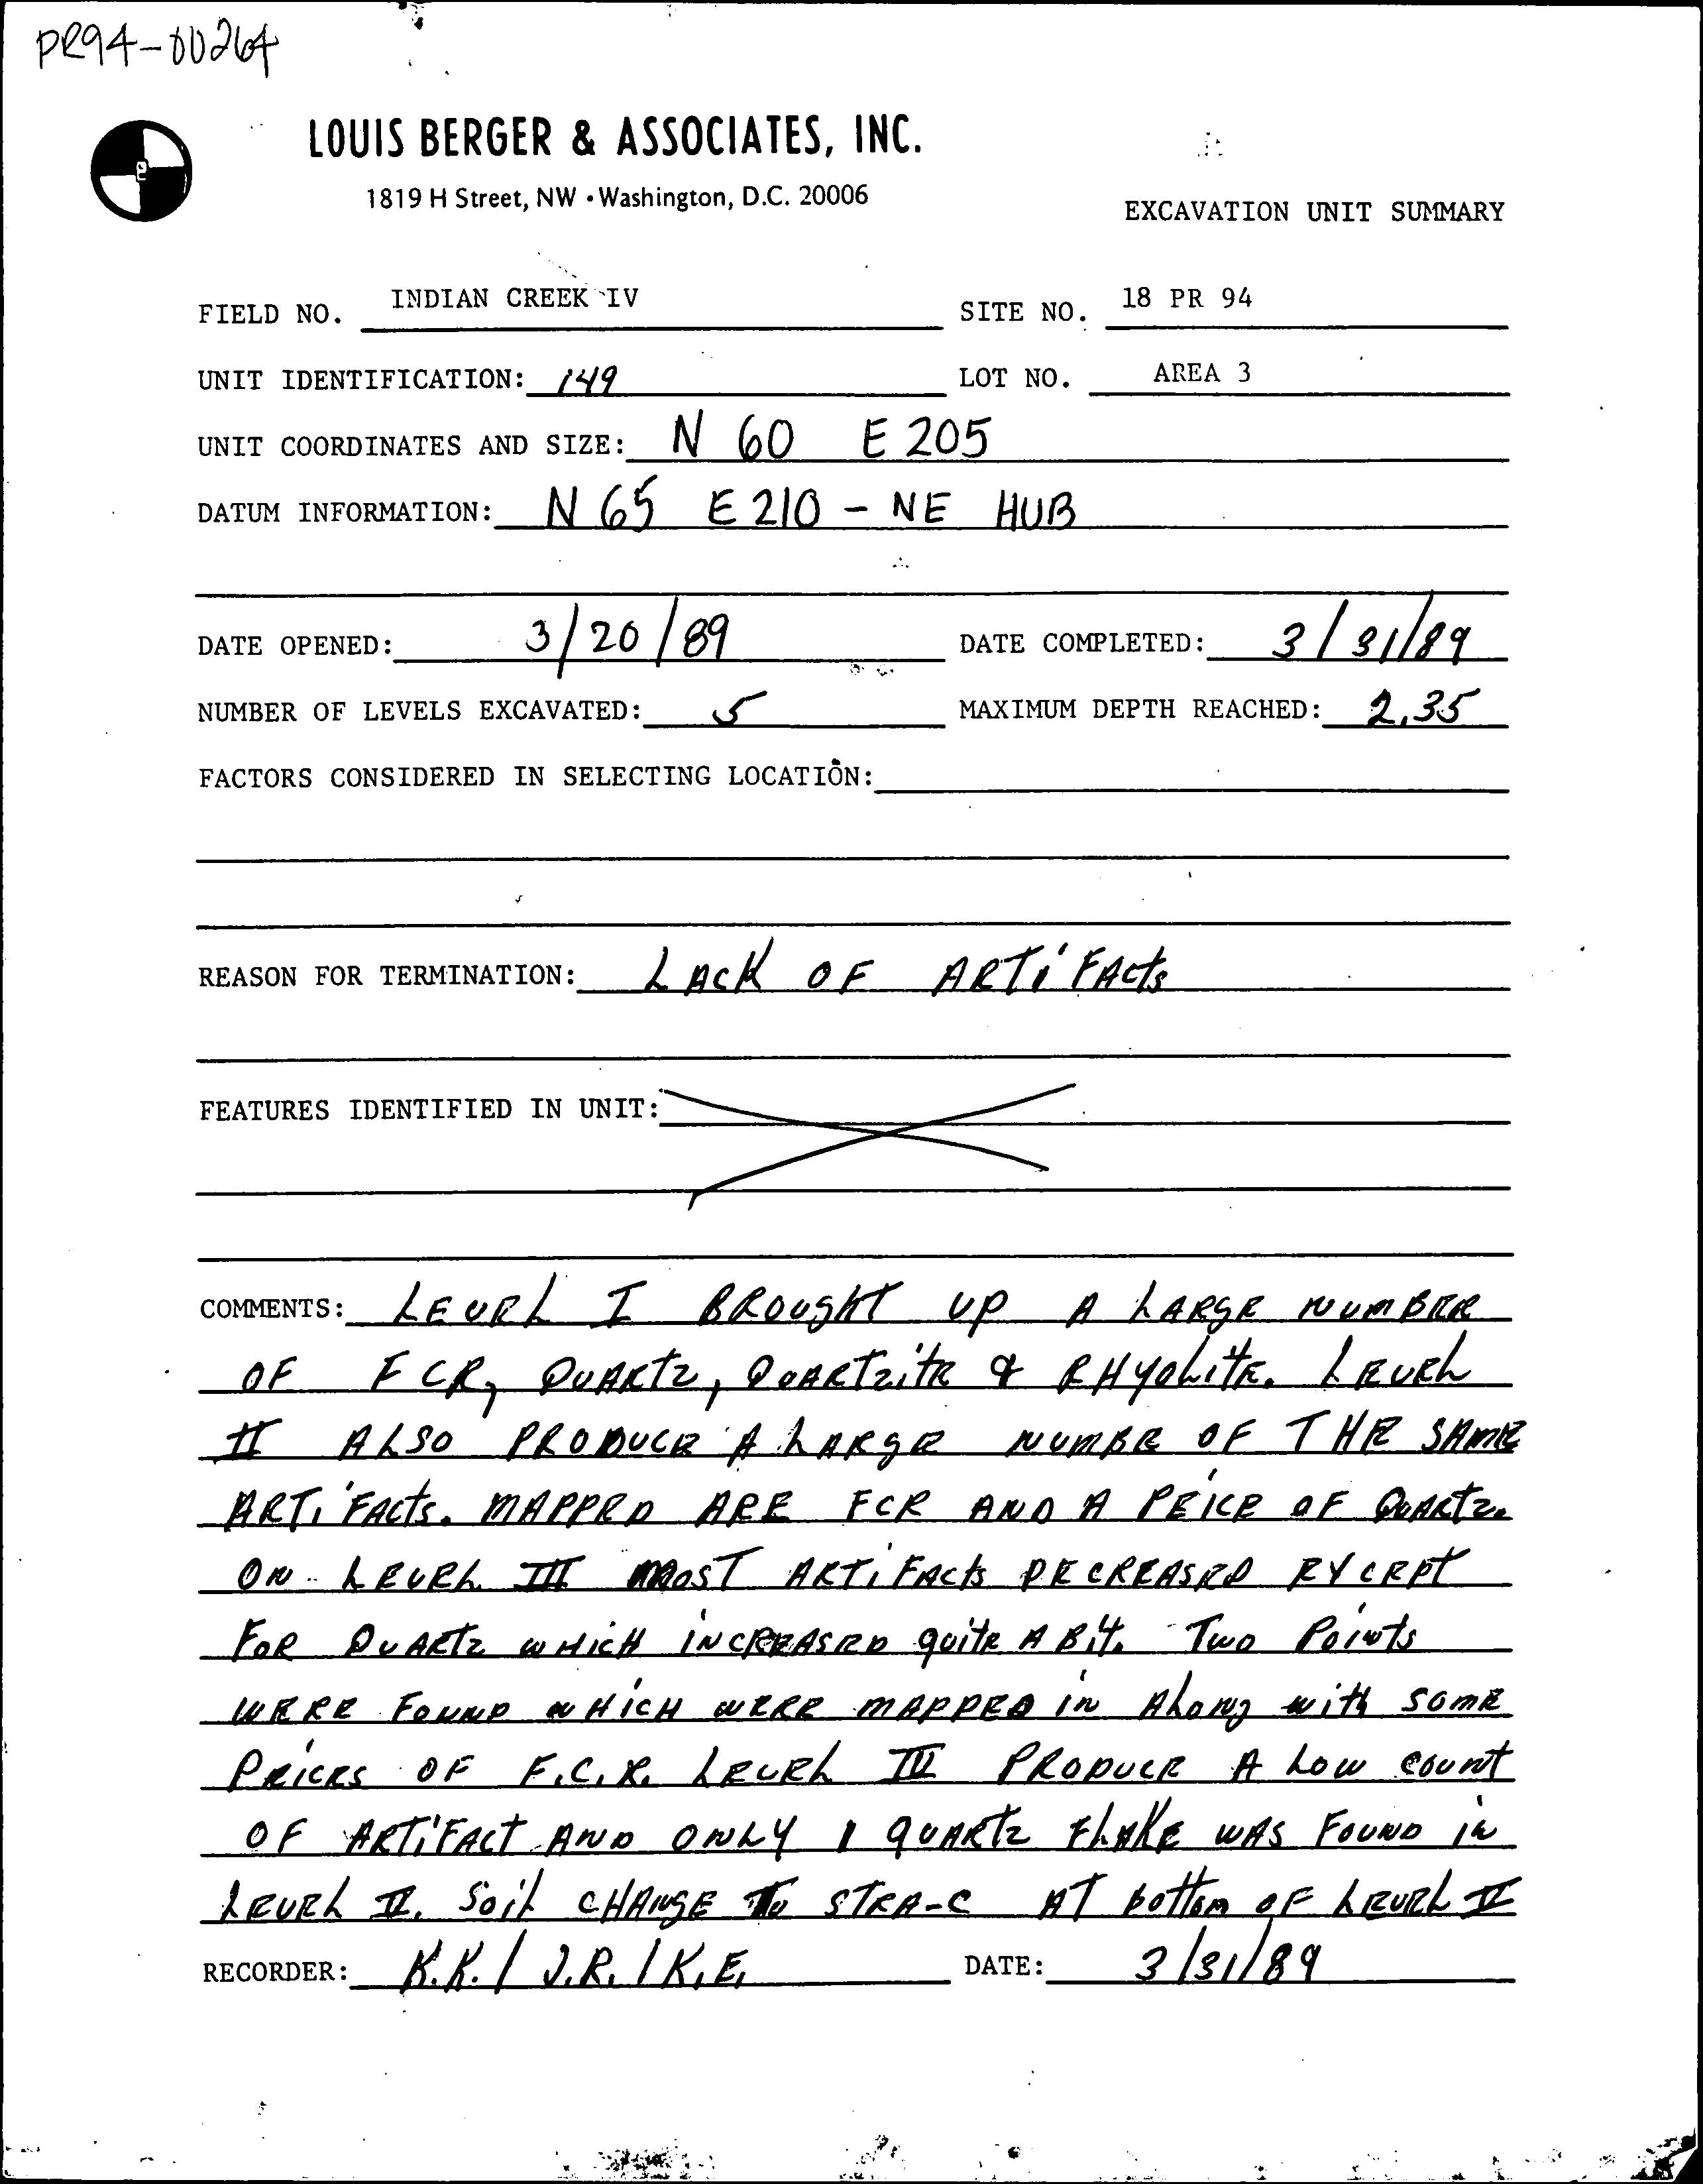 PR94-00264
LOUIS BERGER & ASSOCIATES, INC.
1819 H Street, NW • Washington, D.C. 20006
EXCAVATION UNIT SUMMARY
FIELD NO. INDIAN CREEK IV SITE NO. 18 PR 94
UNIT IDENTIFICATION: 149 LOT NO. AREA 3
UNIT COORDINATES AND SIZE: N 60 E 205
DATUM INFORMATION: N 65 E 210 - NE HUB
DATE OPENED: 3/20/89 DATE COMPLETED: 3/31/89
NUMBER OF LEVELS EXCAVATED: 5 MAXIMUM DEPTH REACHED: 2.35
FACTORS CONSIDERED IN SELECTING LOCATION:
REASON FOR TERMINATION: LACK OF ARTIFACTS
FEATURES IDENTIFIED IN UNIT:
COMMENTS: LEVEL I BROUGHT UP A LARGE NUMBER
OF FCR, QUARTZ, QUARTZITE & RHYOLITE. LEVEL
II ALSO PRODUCE A LARGE NUMBE OF THE SAME
ARTIFACTS. MAPPED ARE FCR AND A PEICE OF QUARTZ.
ON LEVEL III MOST ARTIFACTS DECREASED EXCEPT
FOR QUARTZ WHICH INCREASED QUITE A BIT. TWO POINTS
WERE FOUND WHICH WERE MAPPED IN ALONG WITH SOME
PEICES OF F.C.R. LEVEL IV PRODUCE A LOW COUNT
OF ARTIFACT AND ONLY 1 QUARTZ FLAKE WAS FOUND IN
LEVEL V. SOIL CHANGE TO STRA-C AT BOTTOM OF LEVEL IV
RECORDER: K.K. / J.R. / K.E. DATE: 3/31/89